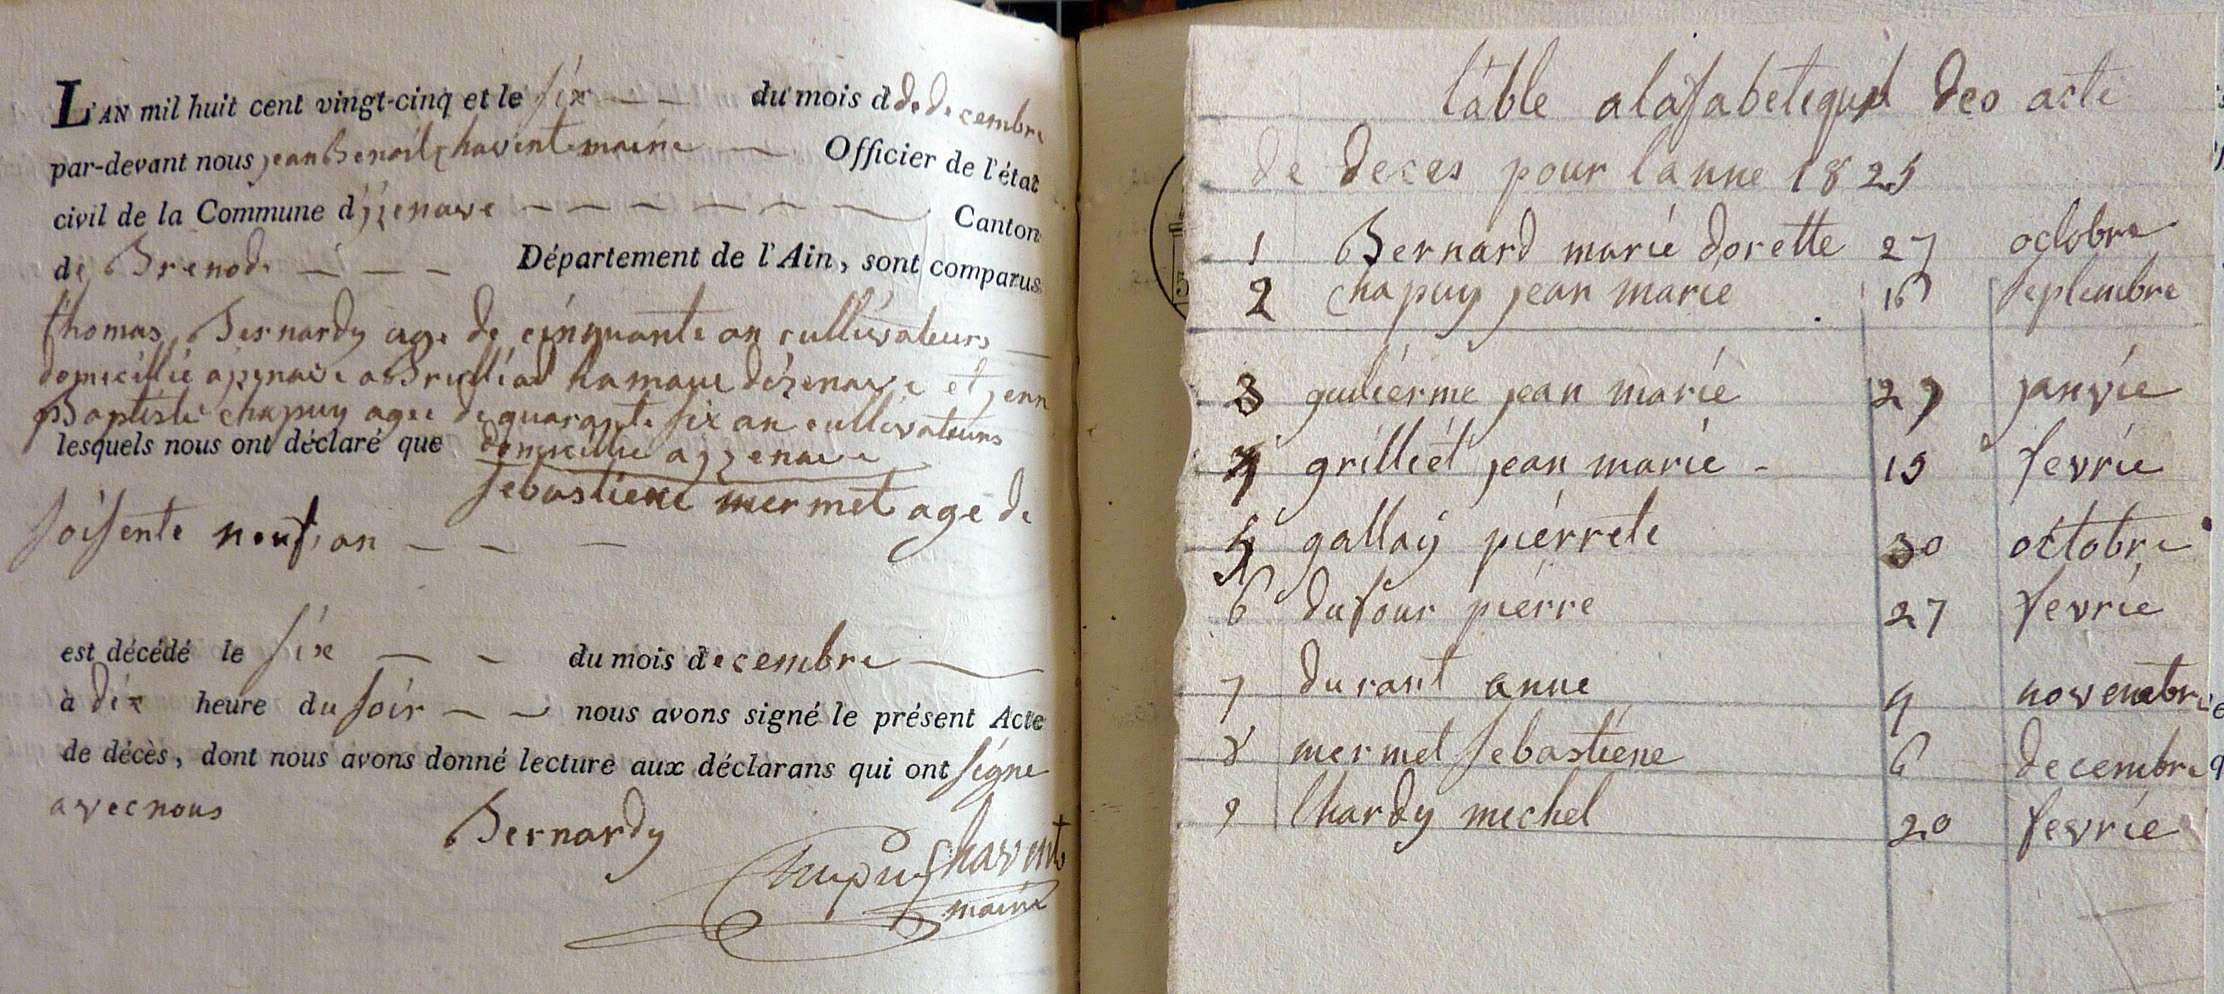 L'AN mil huit cent vingt-cinq et le six du mois d de decembre
par-devant nous jean Benoit chavent maire Officier de l'état
civil de la Commune d'izenave Canton
de Brenod Département de l'Ain, sont comparus
thomas Bernardy age de cinquante an cultivateurs
domicillié a izenave hamau d'izenave et jean
Baptiste chapuy agee de quarante six an cultivateurs
lesquels nous ont déclaré que domicillie a izenave
sebastiene mermet age de
soisente neuf an
est décédé le six du mois decembre
à dix heure du soir nous avons signé le présent Acte
de décès, dont nous avons donné lecture aux déclarans qui ont signe
avec nous
Bernardy
Chapuy Chavent
maire
table alafabetique des acte
de deces pour lanne 1825
1 Bernard marie dorette 27 octobre
2 chapuy jean marie 16 septembre
3 guilierme jean marie 29 janvie
4 grilliet jean marie 15 fevrie
5 gallay pierrete 30 octobre
6 dufour pierre 27 fevrie
7 durant anne 4 novembre
8 mermet sebastiene 6 decembre
9 lhardy michel 20 fevrie